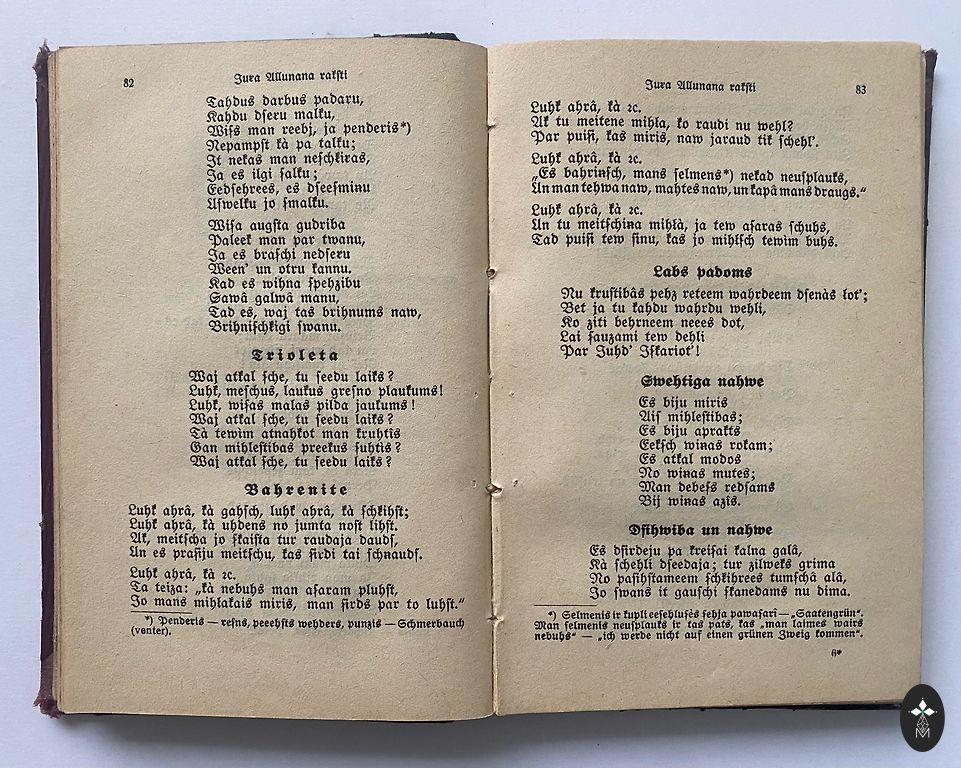 82
Jura Allunana rakſti
Tahdus darbus padaru,
Kahdu dſeru malku,
Wiſs man reebj, ja penderis*)
Nepampſt kà pa talku;
It nekas man neſchkiras,
Ja es ilgi ſalku;
Eedſehrees, es dſeeſminu
Aſwelku jo ſmalku.
Wiſa augſta gudriba
Paleek man par twanu,
Ja es braſchi nedſeru
Ween' un otru kannu.
Kad es wihna ſpehzibu
Sawâ galwâ manu,
Tad es, waj tas brihnums naw,
Brihniſchkigi ſwanu.
Trioleta
Waj atkal ſche, tu ſeedu laiks?
Luhk, meſchus, laukus greſno plaukums!
Luhk, wiſas malas pilda jaukums!
Waj atkal ſche, tu ſeedu laiks?
Tà tewim atnahkot man kruhtis
Gan mihleſtibas preekus ſuhtis?
Waj atkal ſche, tu ſeedu laiks?
Bahrenite
Luhk ahrâ, kà gahſch, luhk ahrâ, kà ſchkihſt;
Luhk ahrâ, kà uhdens no jumta noſt lihſt.
Ak, meitſcha jo ſkaiſta tur raudaja daudſ,
Un es praſiju meitſchu, kas ſirdi tai ſchņaudſ.
Luhk ahrâ, kà ꝛc.
Ta teiza: „kà nebuhs man aſaram pluhſt,
Jo mans mihļakais miris, man ſirds par to luhſt.“
*) Penderis — reſns, peeehſts wehders, punzis — Schmerbauch
(venter).
Jura Allunana rakſti
83
Luhk ahrâ, kà ꝛc.
Ak tu meitene mihļa, ko raudi nu wehl?
Par puiſi, kas miris, naw jaraud tik ſchehl'.
Luhk ahrâ, kà ꝛc.
„Es bahriņſch, mans ſelmens*) nekad neuſplauks,
Un man tehwa naw, mahtes naw, un kapâ mans draugs.“
Luhk ahrâ, kà ꝛc.
Un tu meitſchiņa mihļà, ja tew aſaras ſchuhs,
Tad puiſi tew ſinu, kas jo mihlſch tewim buhs.
Labs padoms
Nu kruſtibâs pehz reteem wahrdeem dſenàs ļot';
Bet ja tu kahdu wahrdu wehli,
Ko ziti behrneem neees dot,
Lai ſauzami tew dehli
Par Juhd' Iſkariot'!
Swehtiga nahwe
Es biju miris
Aiſ mihleſtibas;
Es biju aprakts
Eekſch wiņas rokam;
Es atkal modos
No wiņas mutes;
Man debeſs redſams
Bij wiņas azîs.
Dſihwiba un nahwe
Es dſirdeju pa kreiſai kalna galâ,
Kà ſchehli dſeedaja; tur zilweks grima
No paſihſtameem ſchķihrees tumſchâ alâ,
Jo ſwans it gauſchi ſkanedams nu dima.
*) Selmenis ir kupli eeſehluſés ſehja pawaſarî — „Saatengrün“.
Man ſelmenis neuſplauks ir tas pats, kas „man laimes wairs
nebuhs“ — „ich werde nicht auf einen grünen Zweig kommen“.
6*
M